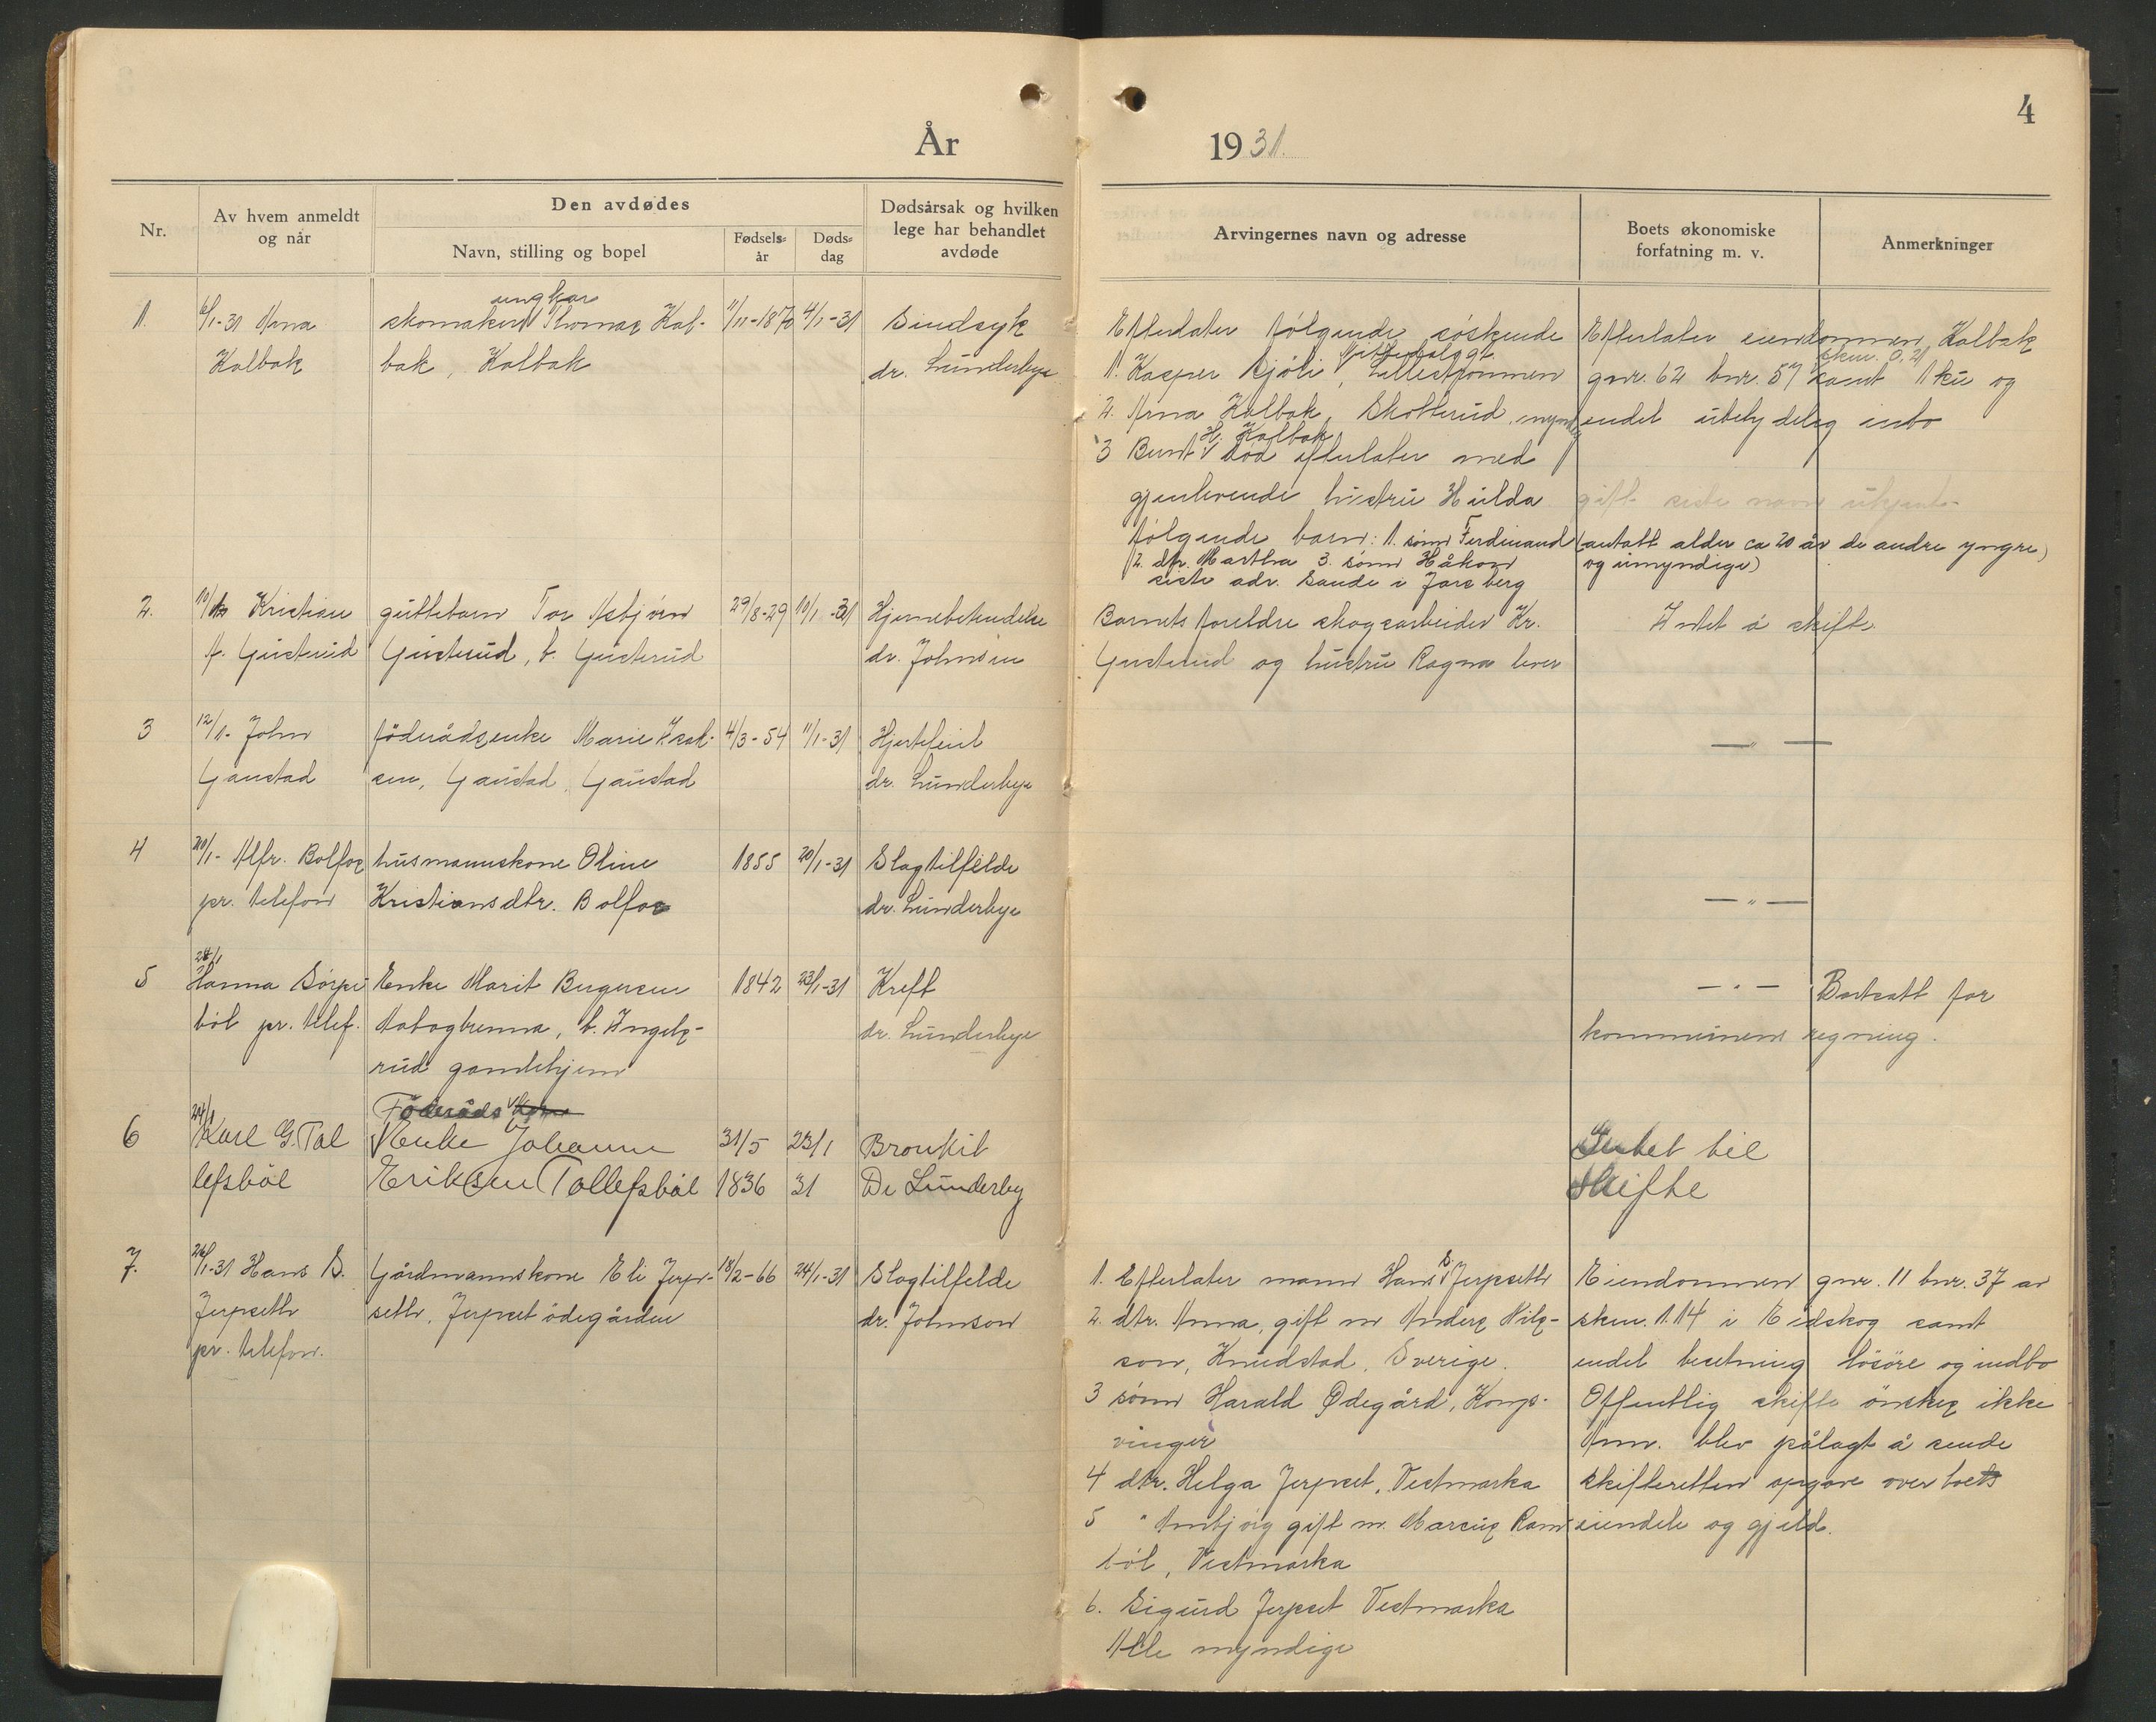 4
År 1931.
Nr.
Av hvem anmeldt
og når
Den avdødes
Navn, stilling og bopel
Fødsels-
år
Døds-
dag
Dødsårsak og hvilken
lege har behandlet
avdøde
Arvingernes navn og adresse
Boets økonomiske
forfatning m. v.
Anmerkninger
1.
6/1-31 Arna
Kalbak
ungkar
skomaker Thomas Kal-
bak, Kalbak
11/11-1870
4/1-31
Sindsyk
dr. Lunderbye
Efterlater følgende søskende
1. Kasper Sjøli, Lillestrømmen
2. Arna Kalbak, Skotterud, myndig
H. Kalbak
3 Bernt død efterlater med
gjenlevende hustru Hulda
følgende barn: 1. sønn Ferdinand
2. dtr. Martha 3. sønn Håkon
siste adr. Sande i Jarsberg
Efterlater eiendommen Kalbak
skm. 0.21
gnr. 62 bnr. 57 samt 1 ku og
endel ubetydelig inbo
gift siste navn ukjent
(antatt alder ca 20 år de andre yngre)
og umyndige)
2.
10/1 Kristian
A. Gusterud
guttebarn Tor Asbjørn
Gusterud, b. Gusterud
29/8-29
10/1-31
Hjernebetendelse
dr. Johnsen
Barnets foreldre skogsarbeider Kr.
Gusterud og hustru Ragna lever
Intet å skifte
3
12/1- John
Gaustad
föderådsenke Marie Isak-
sen, Gaustad, Gaustad
4/3-54
11/1-31
Hjertefeil
dr. Lunderbye
— " —
4
20/1- Alfr. Bolfos
pr. telefon
husmannskone Oline
Kristiansdtr. Bolfos
1855
20/1-31
Slagtilfelde
dr. Lunderbye
— " —
5
24/1
Hanna Sörpe-
böl pr. telef.
Enke Marit Bergersen
Aabogbrenna, b. Ingels-
rud gamlehjem
1842
23/1-31
Kreft
dr. Lunderbye
— " — Bortsatt for
kommunens regning.
6
24/1
Karl G. Tol
lefsböl
Föderåds
Enke Johanne
Eriksen Tollefsböl
31/5
1836
23/1
31
Bronkit
Dr Lunderby
Intet til
Skifte
7.
26/1-31 Hans S.
Jerpseth
pr. telefon.
Gårdmannskone Eli Jerp-
seth, Jerpsetödegården
18/2-66
24/1-31
Slagtilfelde
dr. Johnson
1. Efterlater mann Hans S. Jerpseth
2. dtr. Anna, gift m Anders Nils-
son, Knudstad, Sverige.
3 sønn Harald Ødegård, Kongs-
vinger
4 dtr. Helga Jerpset, Vestmarka
5 " Annbjörg gift m. Marcus Ram-
böl, Vestmarka
6. Sigurd Jerpset Vestmarka
Alle myndige
Eiendommen gnr. 11 bnr. 37 av
skm. 1.14 i Eidskog samt
endel besetning lösöre og indbo
Offentlig skifte önskes ikke
Anm. blev pålagt å sende
skifteretten opgave over boets
eiendele og gjeld.